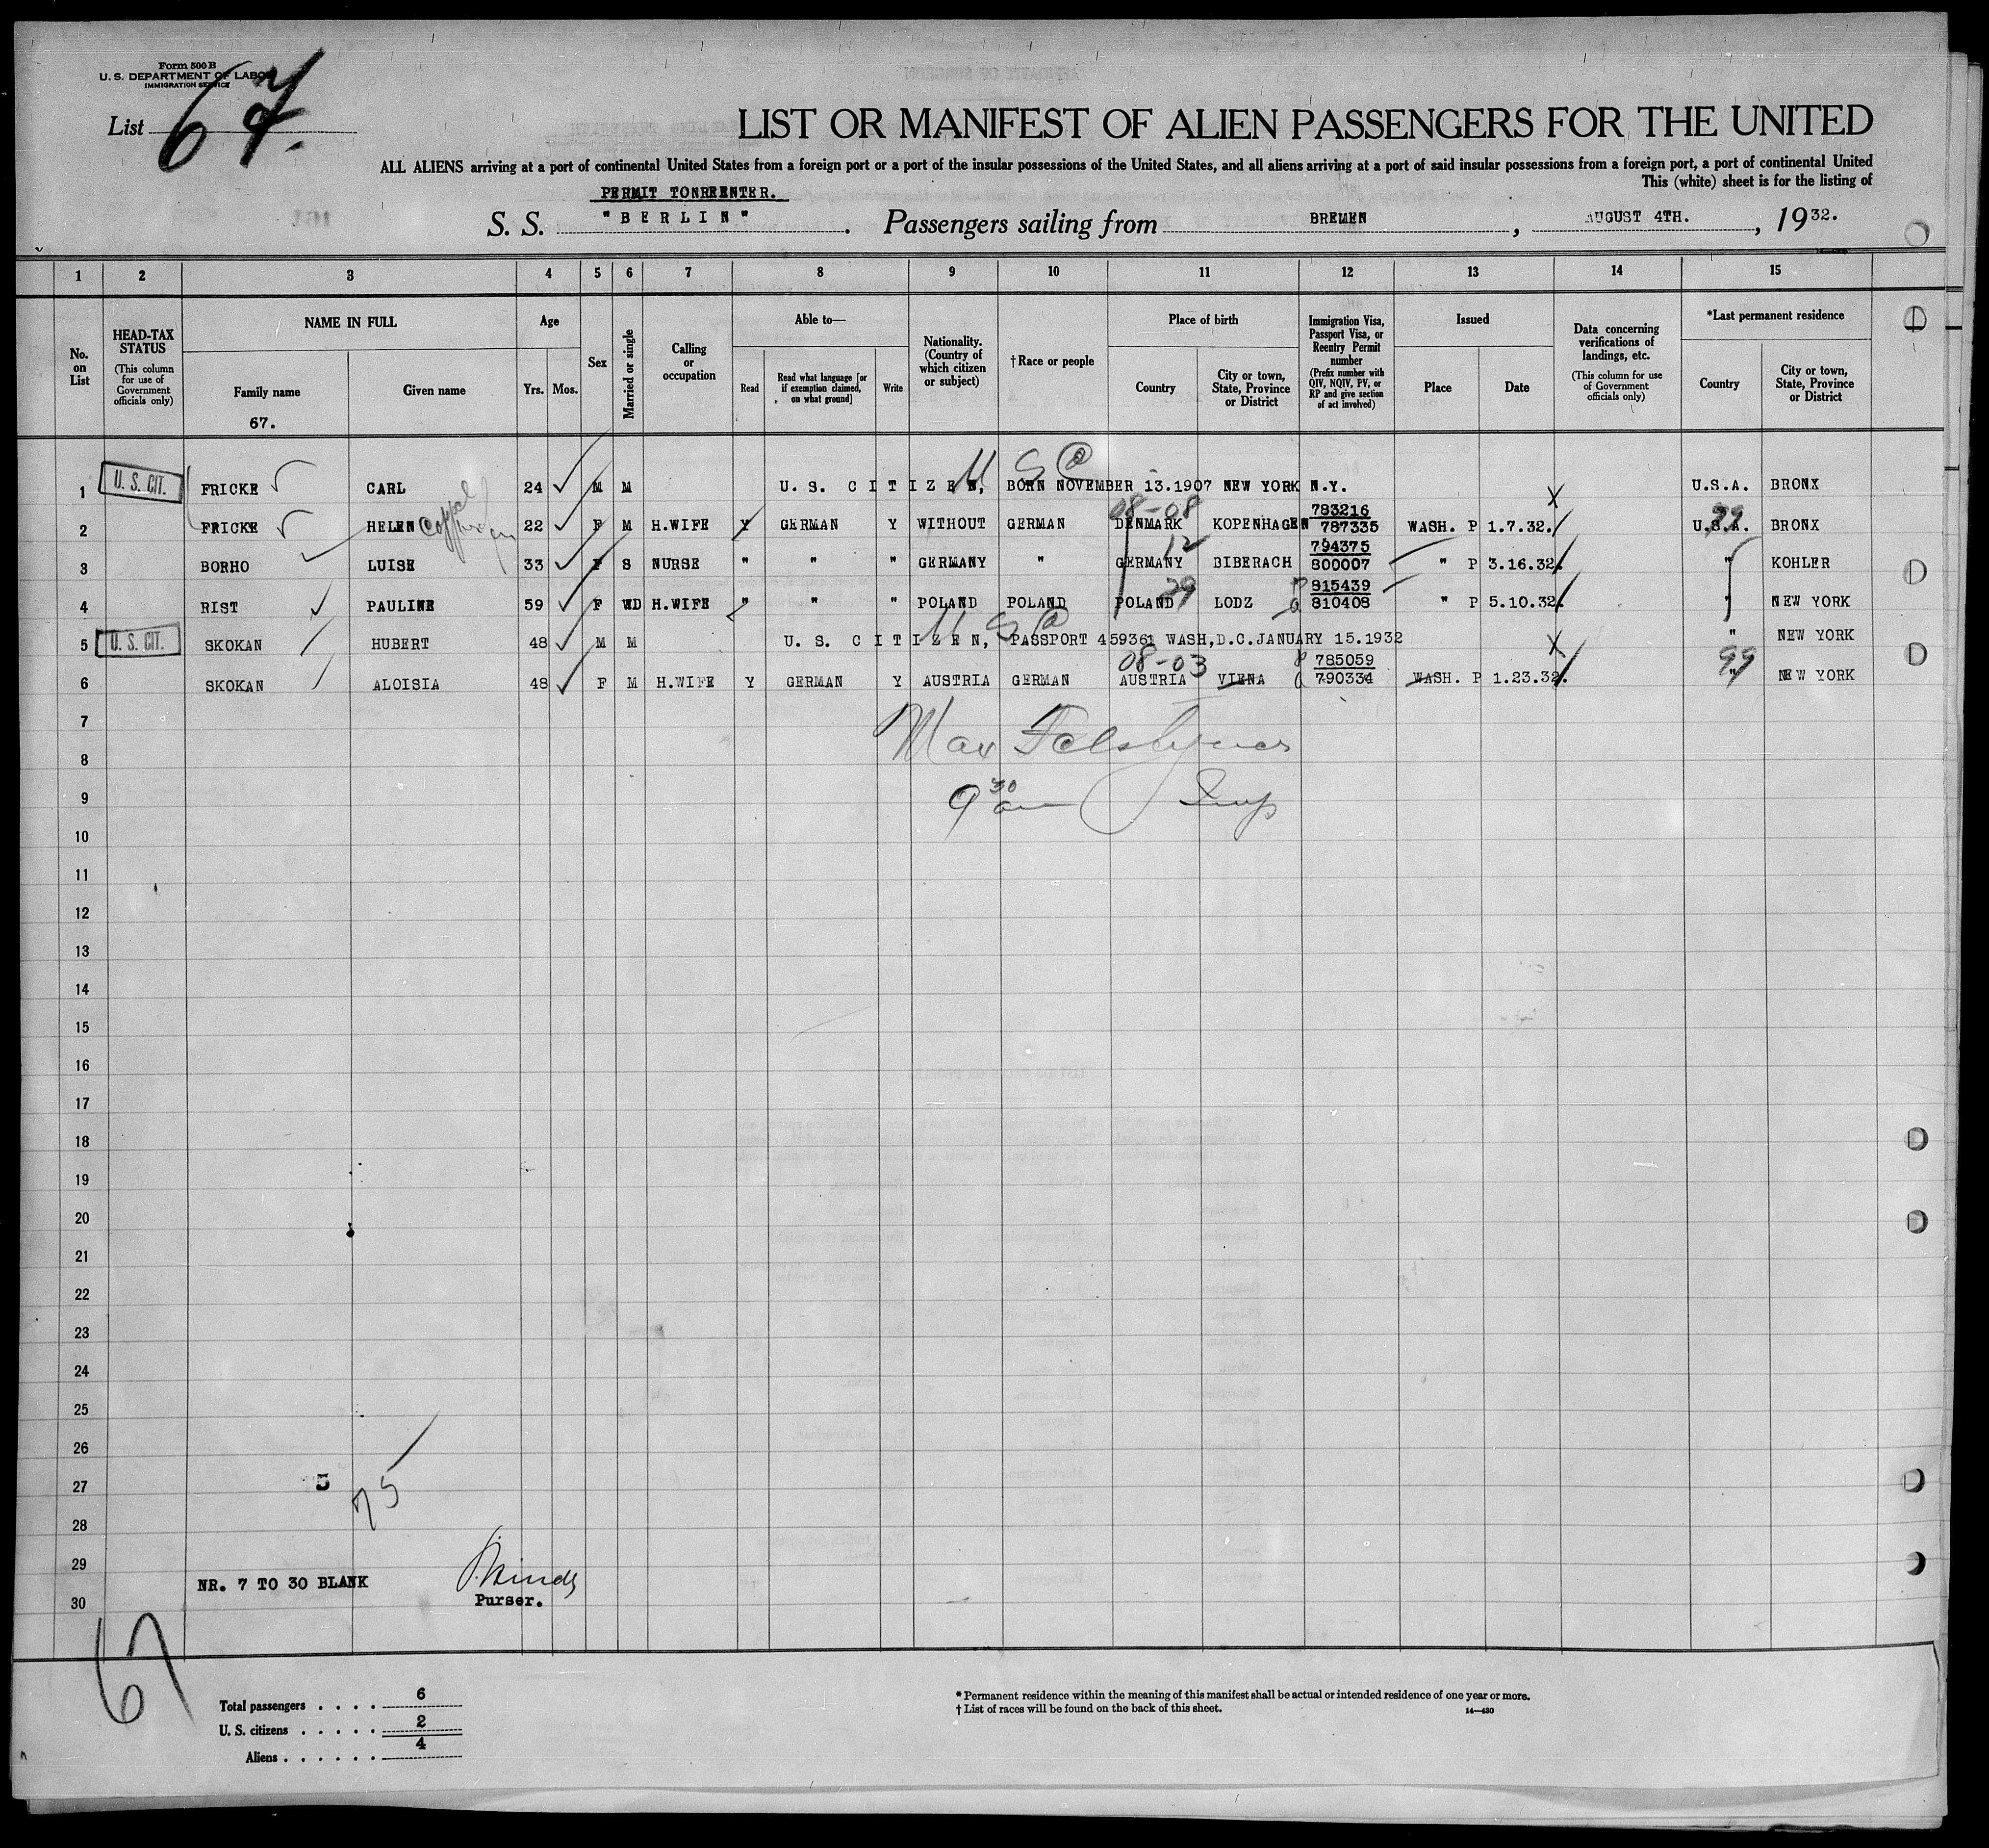 Form 500 B
U. S. DEPARTMENT OF LABOR
IMMIGRATION SERVICE
List 67
LIST OR MANIFEST OF ALIEN PASSENGERS FOR THE UNITED
ALL ALIENS arriving at a port of continental United States from a foreign port or a port of the insular possessions of the United States, and all aliens arriving at a port of said insular possessions from a foreign port, a port of continental United
This (white) sheet is for the listing of
PERMIT TONREENTER.
S. S. "BERLIN". Passengers sailing from BREMEN, AUGUST 4TH., 1932.
1 2 3 4 5 6 7 8 9 10 11 12 13 14 15
No. on List
HEAD-TAX STATUS
(This column for use of Government officials only)
NAME IN FULL
Family name
Given name
67.
Age
Yrs. Mos.
Sex
Married or single
Calling or occupation
Able to—
Read
Read what language [or if exemption claimed, on what ground]
Write
Nationality. (Country of which citizen or subject)
†Race or people
Place of birth
Country
City or town, State, Province or District
Immigration Visa, Passport Visa, or Reentry Permit number
(Prefix number with QIV, NQIV, PV, or RP and give section of act involved)
Issued
Place
Date
Data concerning verifications of landings, etc.
(This column for use of Government officials only)
*Last permanent residence
Country
City or town, State, Province or District
1 U. S. CIT. FRICKE CARL 24 M M U. S. CITIZEN, BORN NOVEMBER 13.1907 NEW YORK N.Y. X U.S.A. BRONX
08-08 783216
2 FRICKE HELEN 22 F M H.WIFE Y GERMAN Y WITHOUT GERMAN DENMARK KOPENHAGEN 787335 WASH. P 1.7.32. U.S.A. 99 BRONX
12 794375
3 BORHO LUISE 33 F S NURSE " " " GERMANY " GERMANY BIBERACH 800007 " P 3.16.32. " KOHLER
29 815439
4 RIST PAULINE 59 F WD H.WIFE " " " POLAND POLAND POLAND LODZ 810408 " P 5.10.32. " NEW YORK
5 U. S. CIT. SKOKAN HUBERT 48 M M U. S. CITIZEN, PASSPORT 459361 WASH,D.C.JANUARY 15.1932 X " NEW YORK
08-03 785059 99
6 SKOKAN ALOISIA 48 F M H.WIFE Y GERMAN Y AUSTRIA GERMAN AUSTRIA VIENA 790334 WASH. P 1.23.32. " NEW YORK
7
8
9 9 30 am Insp
10
11
12
13
14
15
16
17
18
19
20
21
22
23
24
25
26
27 5 75
28
29
NR. 7 TO 30 BLANK
30 Purser.
67
Total passengers . . . . 6
U. S. citizens . . . . . 2
Aliens . . . . . . 4
* Permanent residence within the meaning of this manifest shall be actual or intended residence of one year or more.
† List of races will be found on the back of this sheet.
14—430